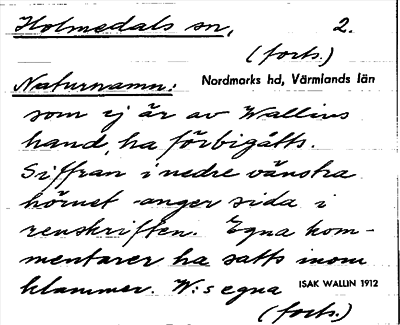 Holmedals sn, 2.
(forts.)
Naturnamn: Nordmarks hd, Värmlands län
som ej är av Wallins
hand, ha förbigåtts.
Siffran i nedre vänstra
hörnet anger sida i
renskriften. Egna kom-
mentarer ha satts inom
klammer. W:s egna ISAK WALLIN 1912
(forts.)